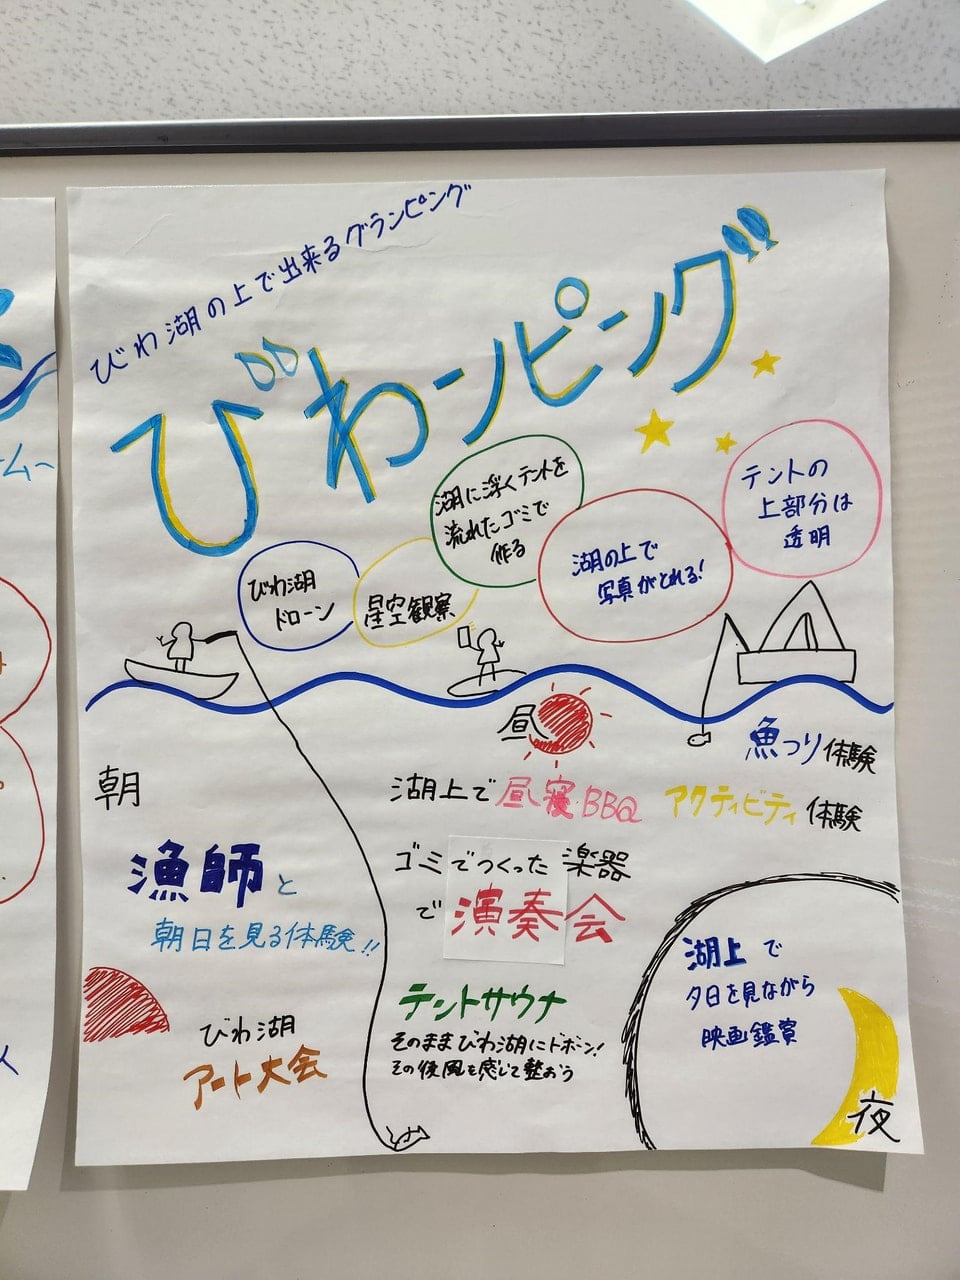 びわ湖の上で出来るグランピング
びわンピング
びわ湖
ドローン
星空観察
湖に浮くテントを
流れたゴミで
作る
湖の上で
写真がとれる！
テントの
上部分は
透明
朝
漁師と
朝日を見る体験!!
びわ湖
アート大会
昼
魚つり体験
湖上で昼寝BBQ アクティビティ体験
ゴミでつくった楽器
で演奏会
テントサウナ
そのままびわ湖にドボーン！
その後風を感じて整おう
湖上で
夕日を見ながら
映画鑑賞
夜
ムー